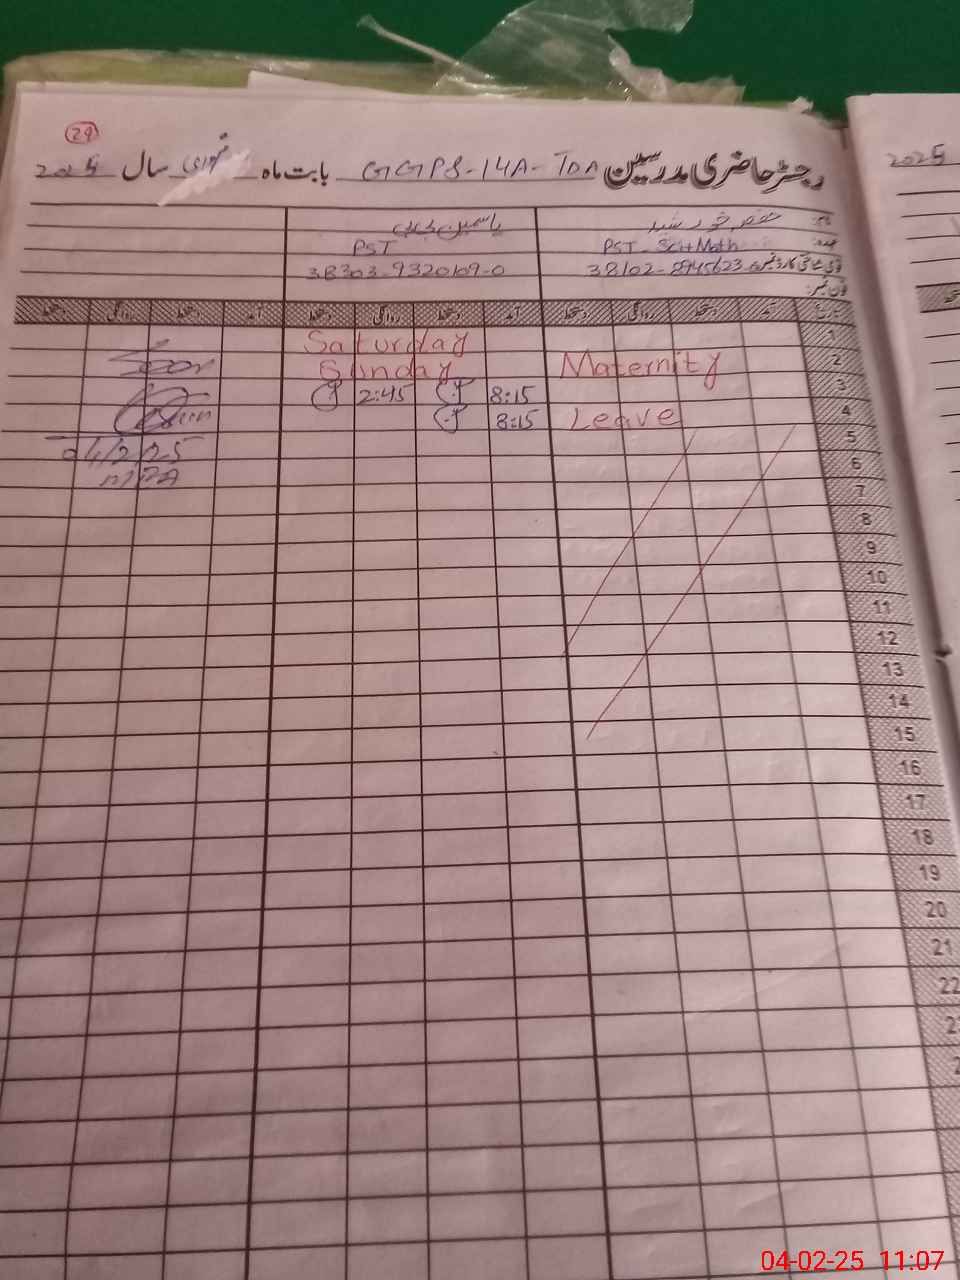 29
رجسٹر حاضری مدرسین GGPS-14A-TDA بابت ماہ فروری سال 2025
2025
نام:
عہدہ: PST Sci+Math PST
قومی شناختی کارڈ نمبر: 38102-8945623 38303-9320109-0
فون نمبر:
تاریخ آمد دستخط روانگی دستخط آمد دستخط روانگی دستخط آمد دستخط روانگی دستخط
1 Saturday
2 Maternity Sunday
3 8:15 2:45
4 Leave 8:15
5 04/2/25
6
7
8
9
10
11
12
13
14
15
16
17
18
19
20
21
22
04-02-25 11:07